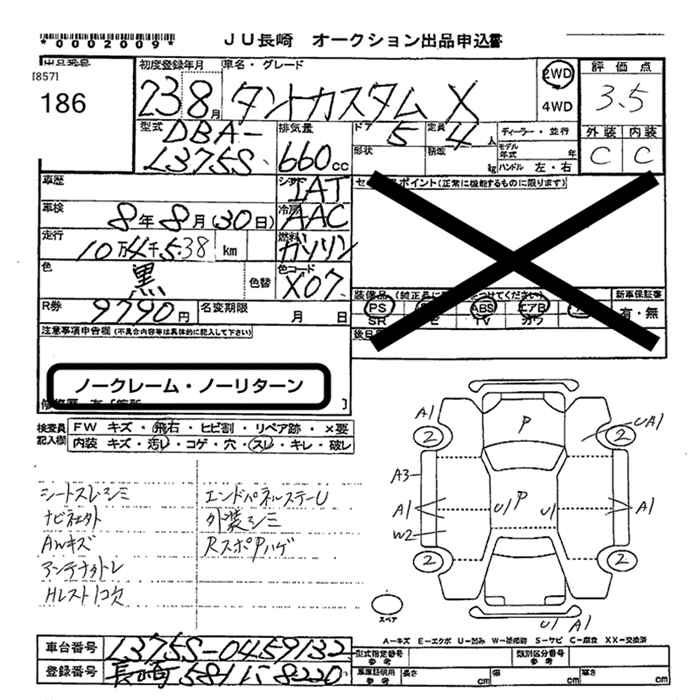 *0002009*
JU長崎 オークション出品申込書
[857]
186
初度登録年月
23 8月
車名・グレード
タントカスタム X
2WD
4WD
評価点
3.5
外装 内装
C C
型式
DBA-
L375S
排気量
660cc
ドア 5
定員 4人
形状
積載 kg
ディーラー・並行
モデル年式 年
ハンドル 左・右
車歴
シフト IAT
セールスポイント(正常に機能するものに限ります)
車検
8年8月(30日)
冷房 AAC
走行
10万4千538 km
燃料 ガソリン
色
黒
色替
色コード X07
R券
9790円
名変期限 月 日
装備品(純正
つけてください)
新車保証書
PS ABS エアB
有・無
SR TV カワ
後日
注意事項申告欄(不具合内容等は具体的に記入して下さい)
ノークレーム・ノーリターン
検査員記入欄
FW キズ・飛石・ヒビ割・リペア跡・×要
内装 キズ・汚レ・コゲ・穴・スレ・キレ・破レ
シートスレシミ
ナビ社外
AWキズ
アンテナカレ
Hレスト1コ欠
エンドパネルステーU
外装シミ
RスポPハゲ
A1
2
P
UA1
2
A3
A1
W2
U1
P
U1
A1
2
2
スペア
U1 A1
A-キズ E-エクボ U-凹み W-補修跡 S-サビ C-腐食 XX-交換済
車台番号
L375S-0459132
登録番号
長崎581に8220
型式指定番号
参考
類別区分番号
参考
車庫証明用
参考
長さ cm
幅 cm
高さ cm